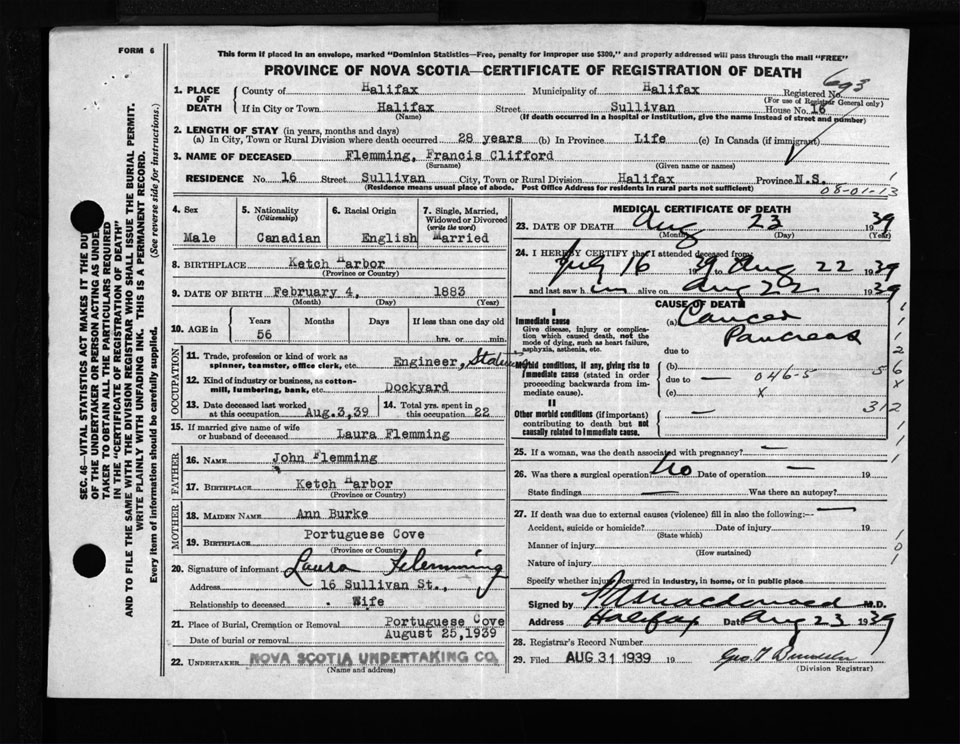 FORM 6
This form if placed in an envelope, marked "Dominion Statistics—Free, penalty for improper use $300," and properly addressed will pass through the mail "FREE"
PROVINCE OF NOVA SCOTIA—CERTIFICATE OF REGISTRATION OF DEATH
693
1. PLACE OF DEATH
County of Halifax Municipality of Halifax Registered No.
(For use of Registrar General only)
If in City or Town Halifax Street Sullivan House No. 16
(Name) (If death occurred in a hospital or institution, give the name instead of street and number)
2. LENGTH OF STAY (in years, months and days)
(a) In City, Town or Rural Division where death occurred 28 years (b) In Province Life (c) In Canada (if immigrant)
3. NAME OF DECEASED Flemming, Francis Clifford
(Surname) (Given name or names)
RESIDENCE No. 16 Street Sullivan City, Town or Rural Division Halifax Province N.S.
(Residence means usual place of abode. Post Office Address for residents in rural parts not sufficient)
08-01-13
4. Sex
Male
5. Nationality
(Citizenship)
Canadian
6. Racial Origin
English
7. Single, Married, Widowed or Divorced
(write the word)
Married
8. BIRTHPLACE Ketch Harbor
(Province or Country)
9. DATE OF BIRTH February 4, 1883
(Month) (Day) (Year)
10. AGE in
Years Months Days If less than one day old
56 hrs. or min.
OCCUPATION
11. Trade, profession or kind of work as spinner, teamster, office clerk, etc. Engineer,
12. Kind of industry or business, as cotton-mill, lumbering, bank, etc. Dockyard
13. Date deceased last worked at this occupation Aug.3,39
14. Total yrs. spent in this occupation 22
15. If married give name of wife or husband of deceased Laura Flemming
FATHER
16. NAME John Flemming
17. BIRTHPLACE Ketch Harbor
(Province or Country)
MOTHER
18. MAIDEN NAME Ann Burke
19. BIRTHPLACE Portuguese Cove
(Province or Country)
20. Signature of informant Laura Flemming
Address 16 Sullivan St.,
Relationship to deceased Wife
21. Place of Burial, Cremation or Removal Portuguese Cove
Date of burial or removal August 25,1939
22. UNDERTAKER NOVA SCOTIA UNDERTAKING CO.
(Name and address)
MEDICAL CERTIFICATE OF DEATH
23. DATE OF DEATH Aug 23 1939
(Month) (Day) (Year)
24. I HEREBY CERTIFY that I attended deceased from
July 16 1939 to Aug 22 1939
and last saw him alive on Aug 22 1939
CAUSE OF DEATH
I
Immediate cause (a) Cancer
Give disease, injury or complication which caused death, not the mode of dying, such as heart failure, asphyxia, asthenia, etc.
Pancreas
due to
Morbid conditions, if any, giving rise to immediate cause (stated in order proceeding backwards from immediate cause).
(b)
due to — 046-5
(c) x
II
Other morbid conditions (if important) contributing to death but not causally related to immediate cause.
—
312
25. If a woman, was the death associated with pregnancy? —
26. Was there a surgical operation? No Date of operation — 19
State findings — Was there an autopsy?
27. If death was due to external causes (violence) fill in also the following:— —
Accident, suicide or homicide? Date of injury 19
(State which)
Manner of injury
(How sustained)
Nature of injury
Specify whether injury occurred in industry, in home, or in public place
Signed by Macdonald M.D.
Address Halifax Date Aug 23 1939
28. Registrar's Record Number
29. Filed AUG 31 1939 19
(Division Registrar)
SEC. 46—VITAL STATISTICS ACT MAKES IT THE DUTY
OF THE UNDERTAKER OR PERSON ACTING AS UNDER-
TAKER TO OBTAIN ALL THE PARTICULARS REQUIRED
IN THE "CERTIFICATE OF REGISTRATION OF DEATH"
AND TO FILE THE SAME WITH THE DIVISION REGISTRAR WHO SHALL ISSUE THE BURIAL PERMIT.
WRITE PLAINLY WITH UNFADING INK. THIS IS A PERMANENT RECORD.
Every item of information should be carefully supplied. (See reverse side for instructions.)